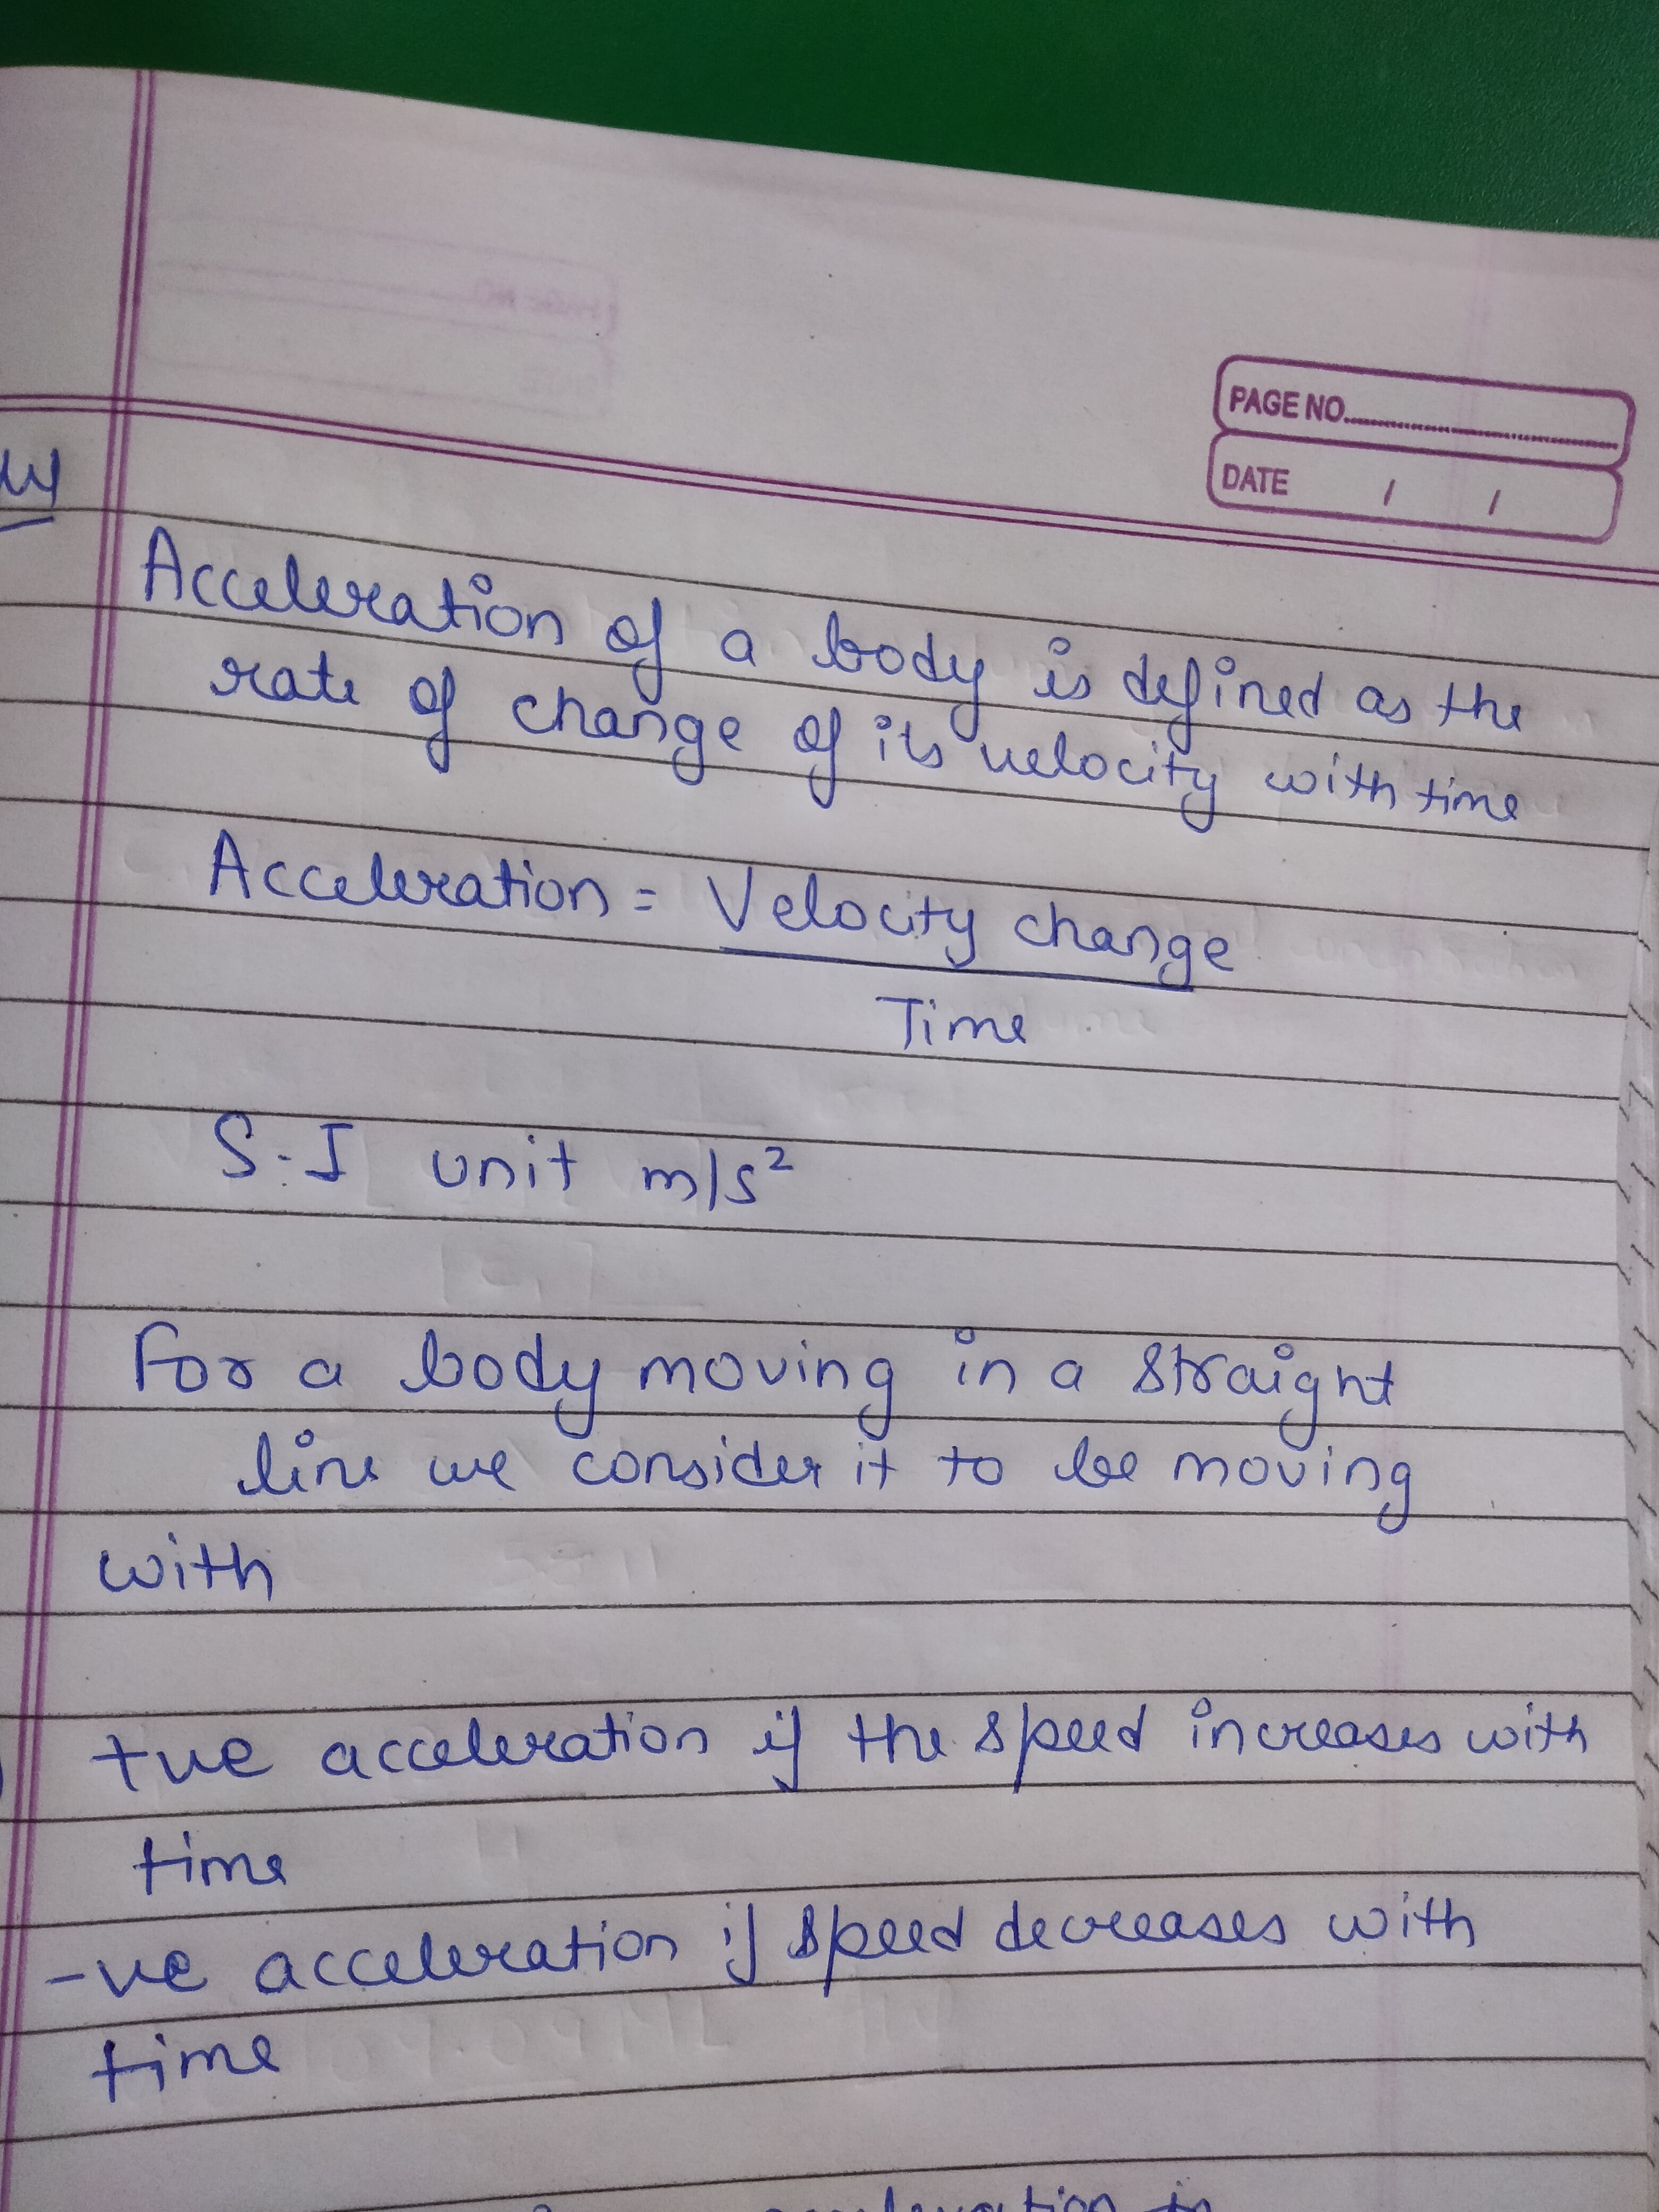 PAGE NO.
DATE / /
Acceleration of a body is defined as the
rate of change of its velocity with time
Acceleration = Velocity change
Time
S.I unit m/s²
For a body moving in a straight
line we consider it to be moving
with
+ve acceleration if the speed increases with
time
-ve acceleration if speed decreases with
time